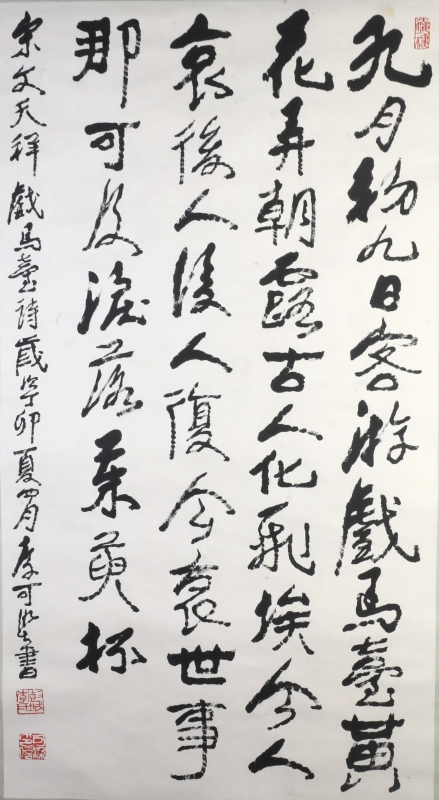 九月初九日客游戲馬臺黄
花弄朝露古人化飛埃今人
哀後人後人復今哀世事
那可及淚落茱萸杯
宋文天祥戲馬臺詩歲丁卯夏四月李可書